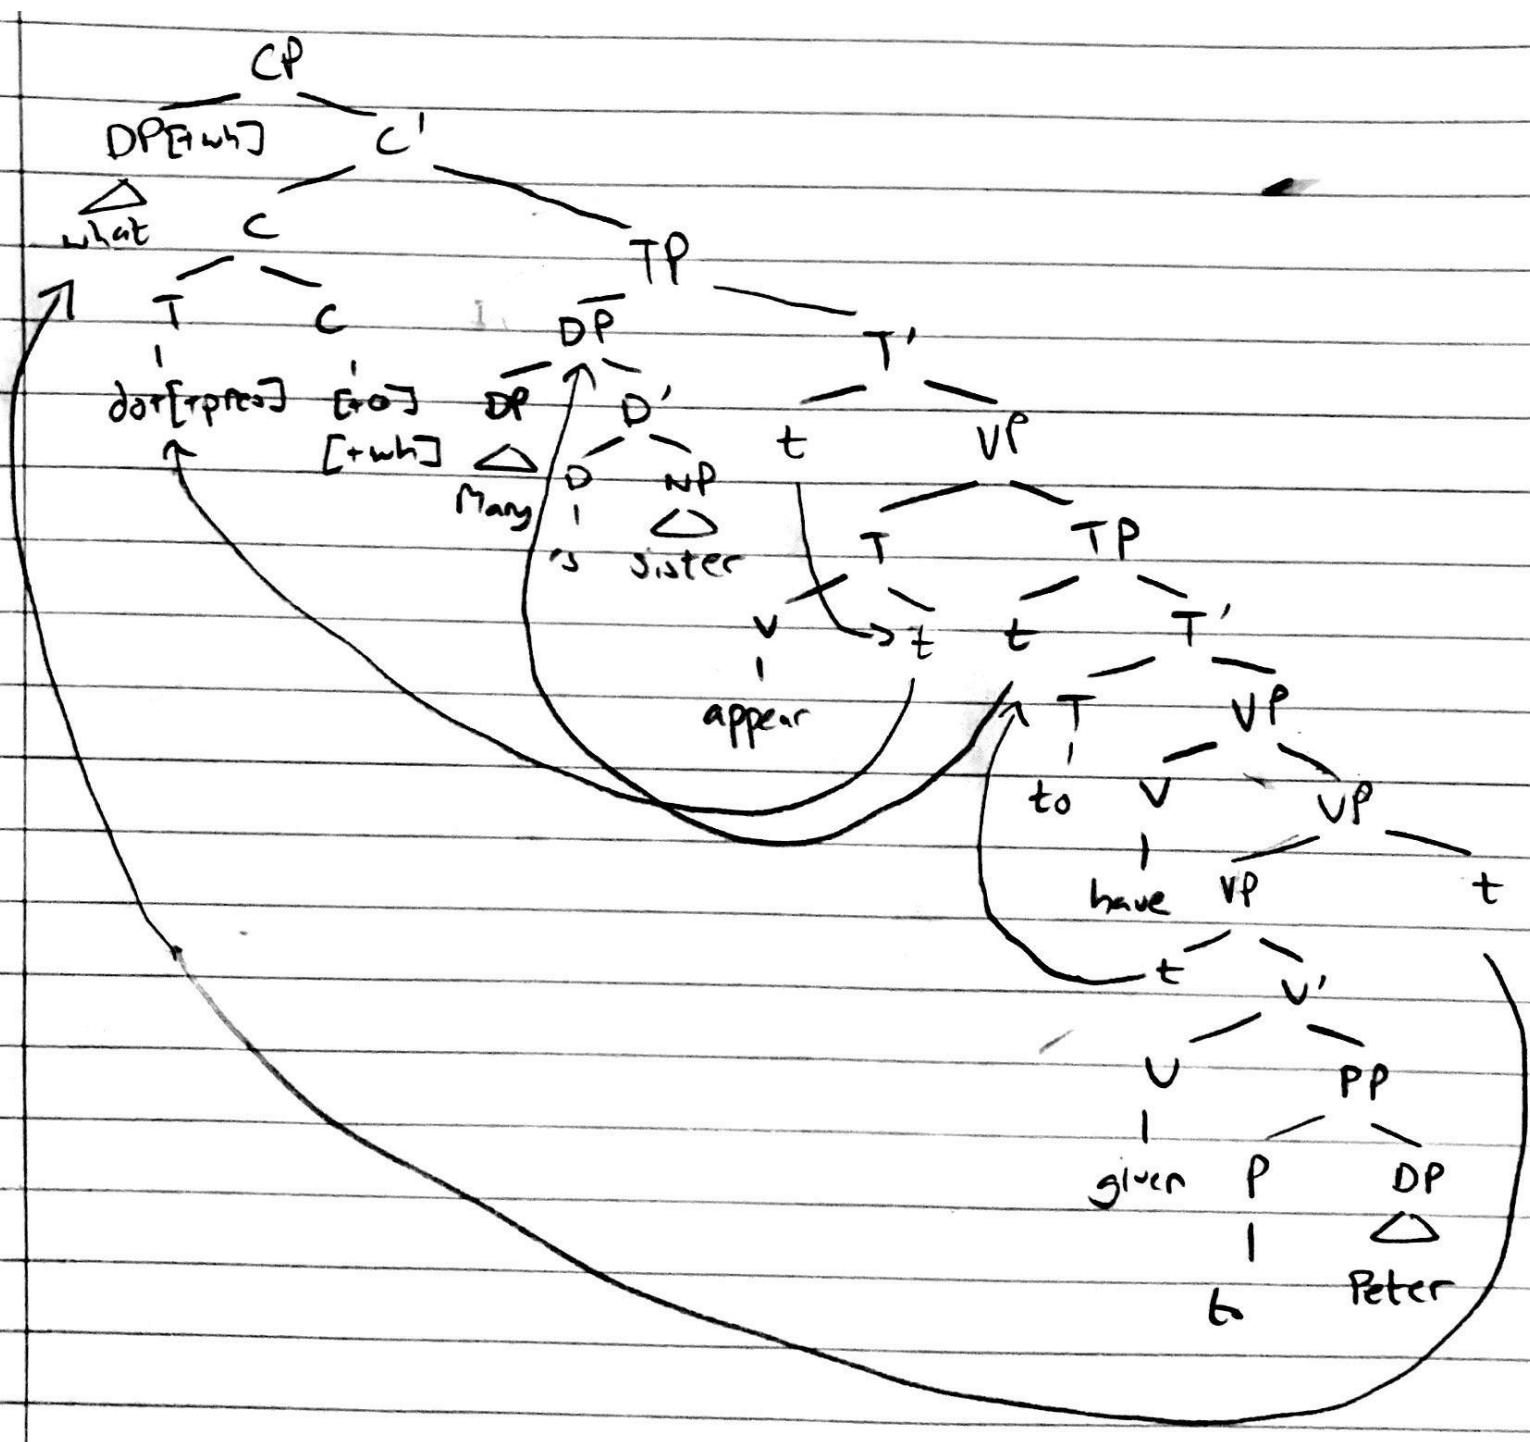 CP
DP[+wh] C'
what C TP
T C DP T'
do+[+pres] [+Q] DP D' t VP
[+wh] Mary D NP T TP
's sister V t t T'
appear T VP
to V VP
have VP t
t V'
V PP
given P DP
to Peter